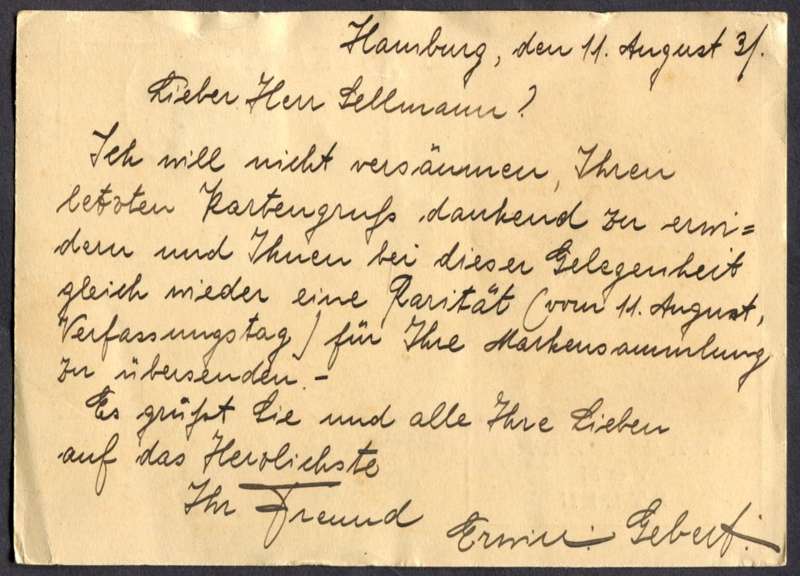 Hamburg, den 11. August 31.
Lieber Herr Sellmann!
Ich will nicht versäumen, Ihren
letzten Kartengruß dankend zu erwi=
dern und Ihnen bei dieser Gelegenheit
gleich wieder eine Rarität (vom 11. August,
Verfassungstag) für Ihre Markensammlung
zu übersenden. –
Es grüßt Sie und alle Ihre Lieben
auf das Herzlichste
Ihr Freund
Erwin Gebert.